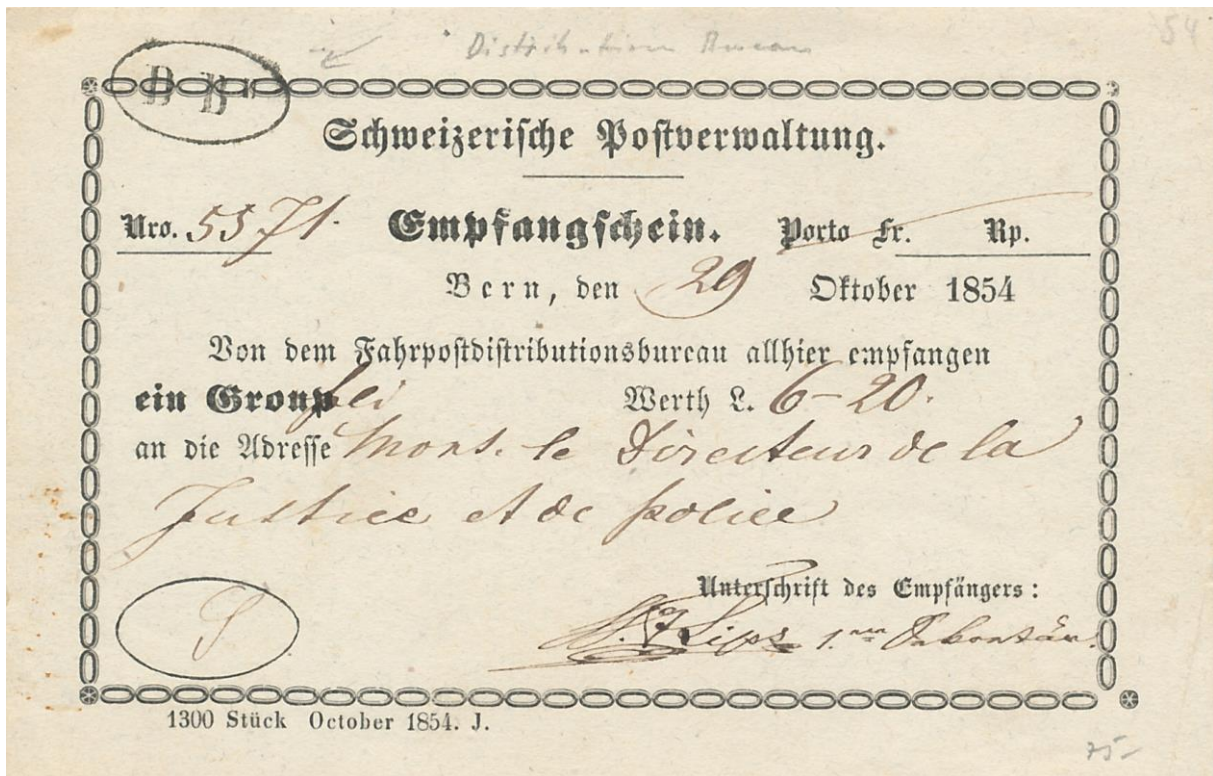 Distribution Bureau
54
B B
Schweizerische Postverwaltung.
Nro. 5571. Empfangschein. Porto Fr. Rp.
Bern, den 29 Oktober 1854
Von dem Fahrpostdistributionsbureau allhier empfangen
ein Group Werth L. 6-20.
an die Adresse Mons. le Directeur de la
Justice et de police
Unterschrift des Empfängers:
Lips 1.
1300 Stück October 1854. J.
75-